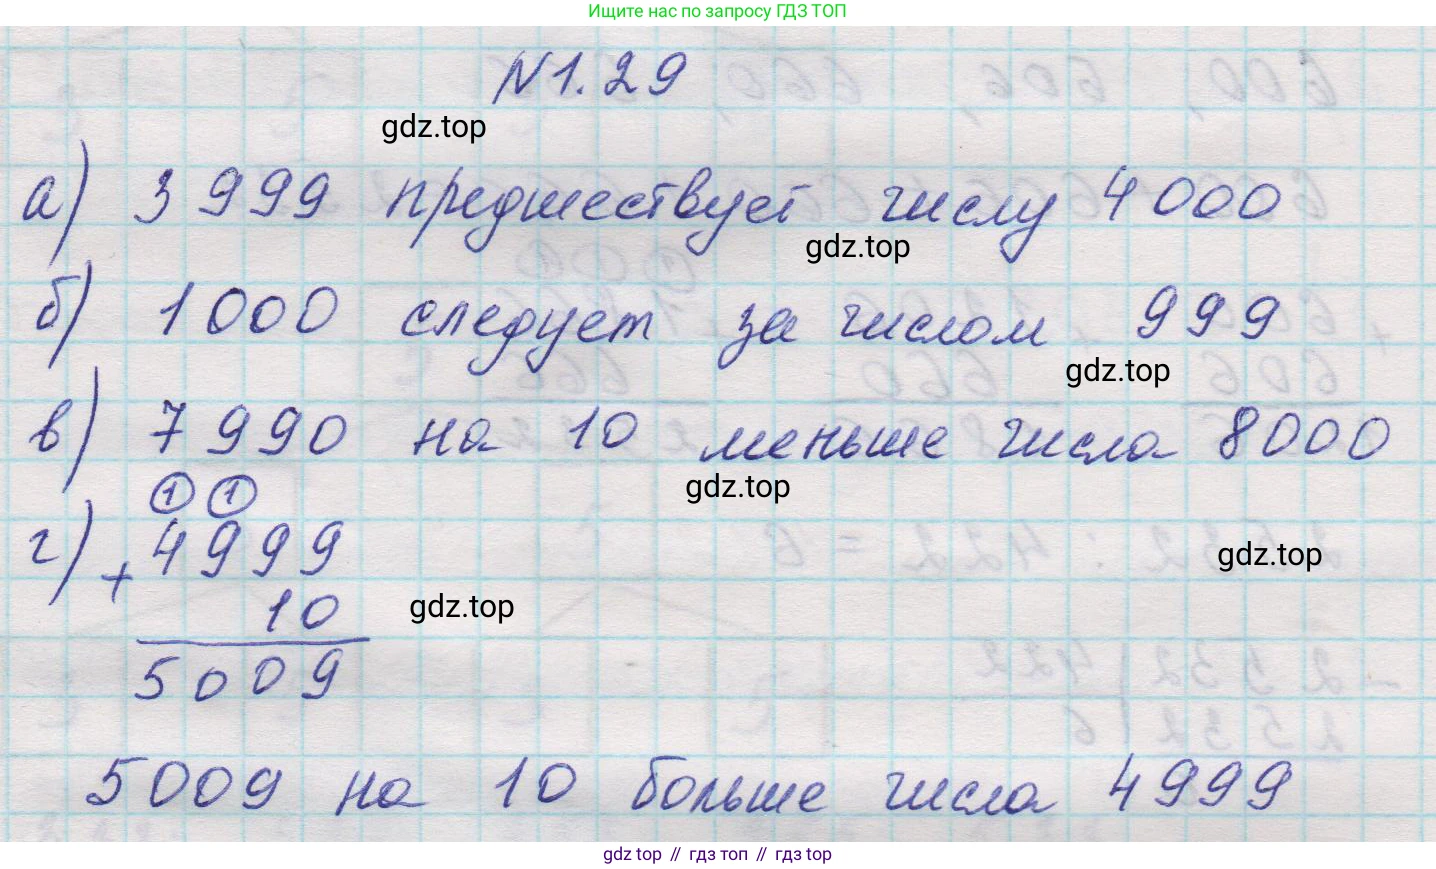 Ищите нас по запросу ГДЗ ТОП
N1.29
gdz.top
а) 3999 предшествует числу 4000
gdz.top
б) 1000 следует за числом 999
gdz.top
в) 7990 на 10 меньше числа 8000
gdz.top
1 1
г) + 4999
gdz.top
10
gdz.top
5009
5009 на 10 больше числа 4999
gdz top // гдз топ // gdz top